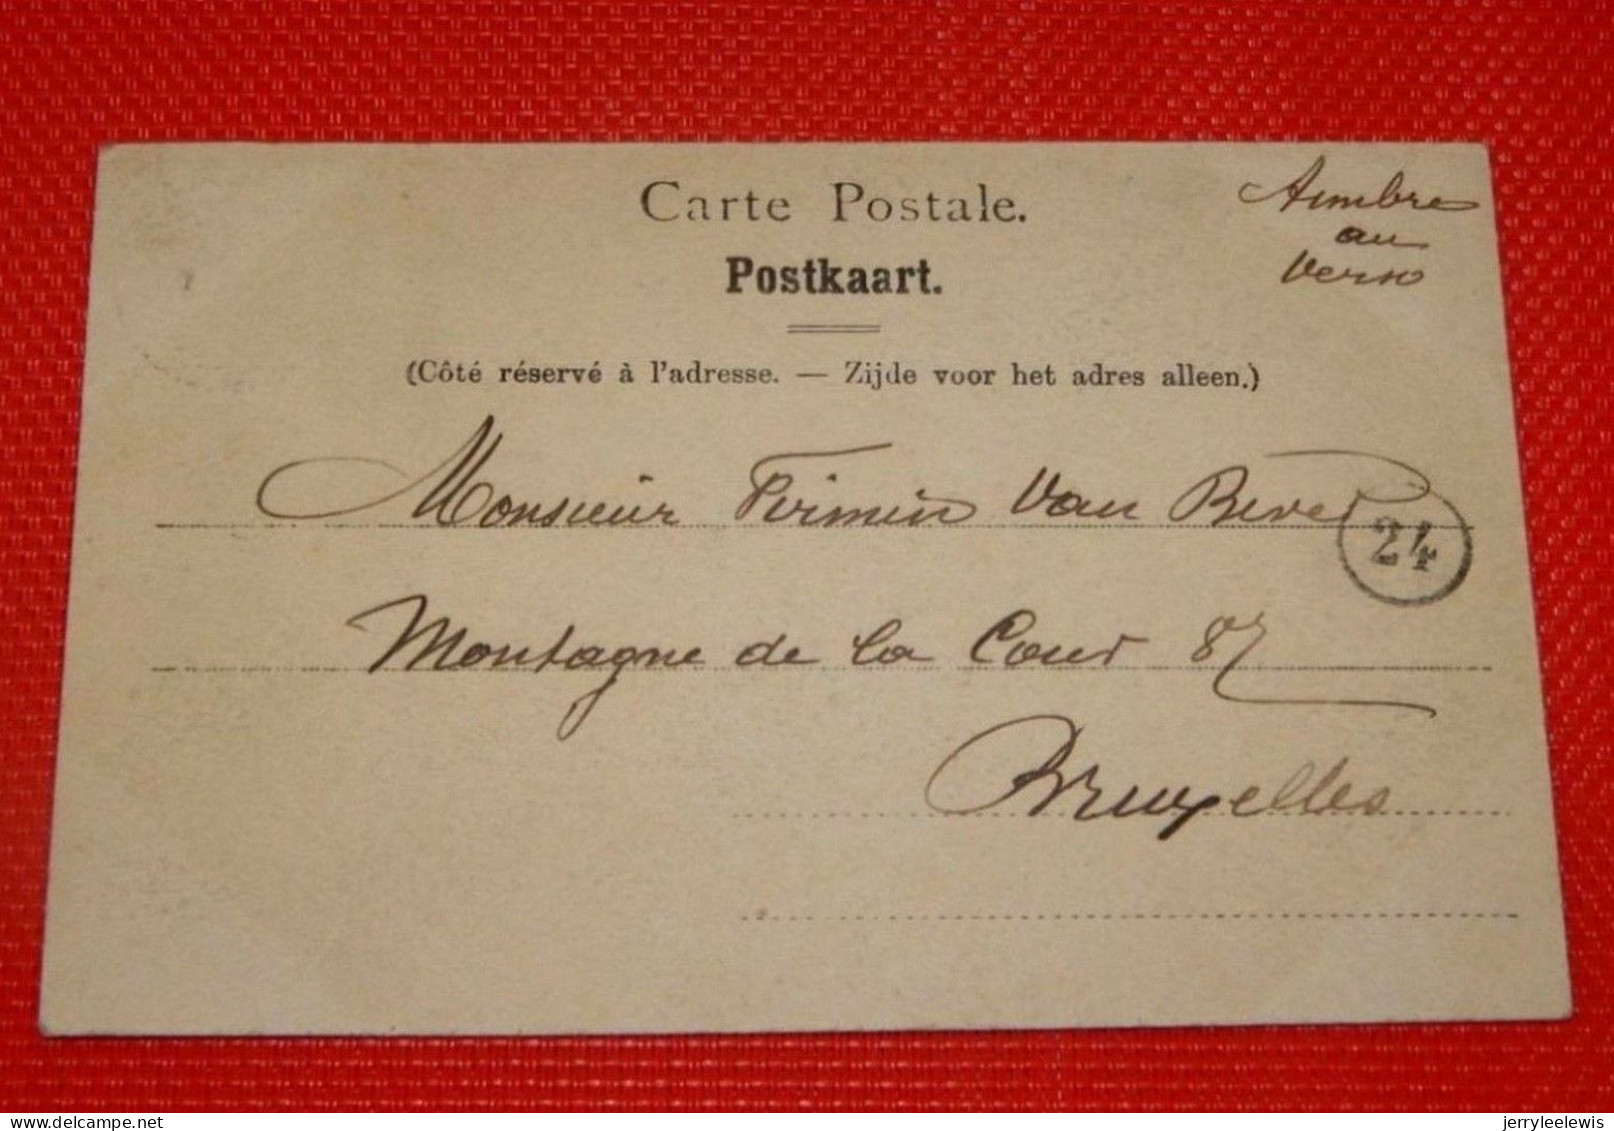 Carte Postale.
Timbre
au
verso
Postkaart.
(Côté réservé à l'adresse. — Zijde voor het adres alleen.)
Monsieur Firmin Van Biver
24
Montagne de la Cour 87
Bruxelles
delcampe.net
jerryleelewis